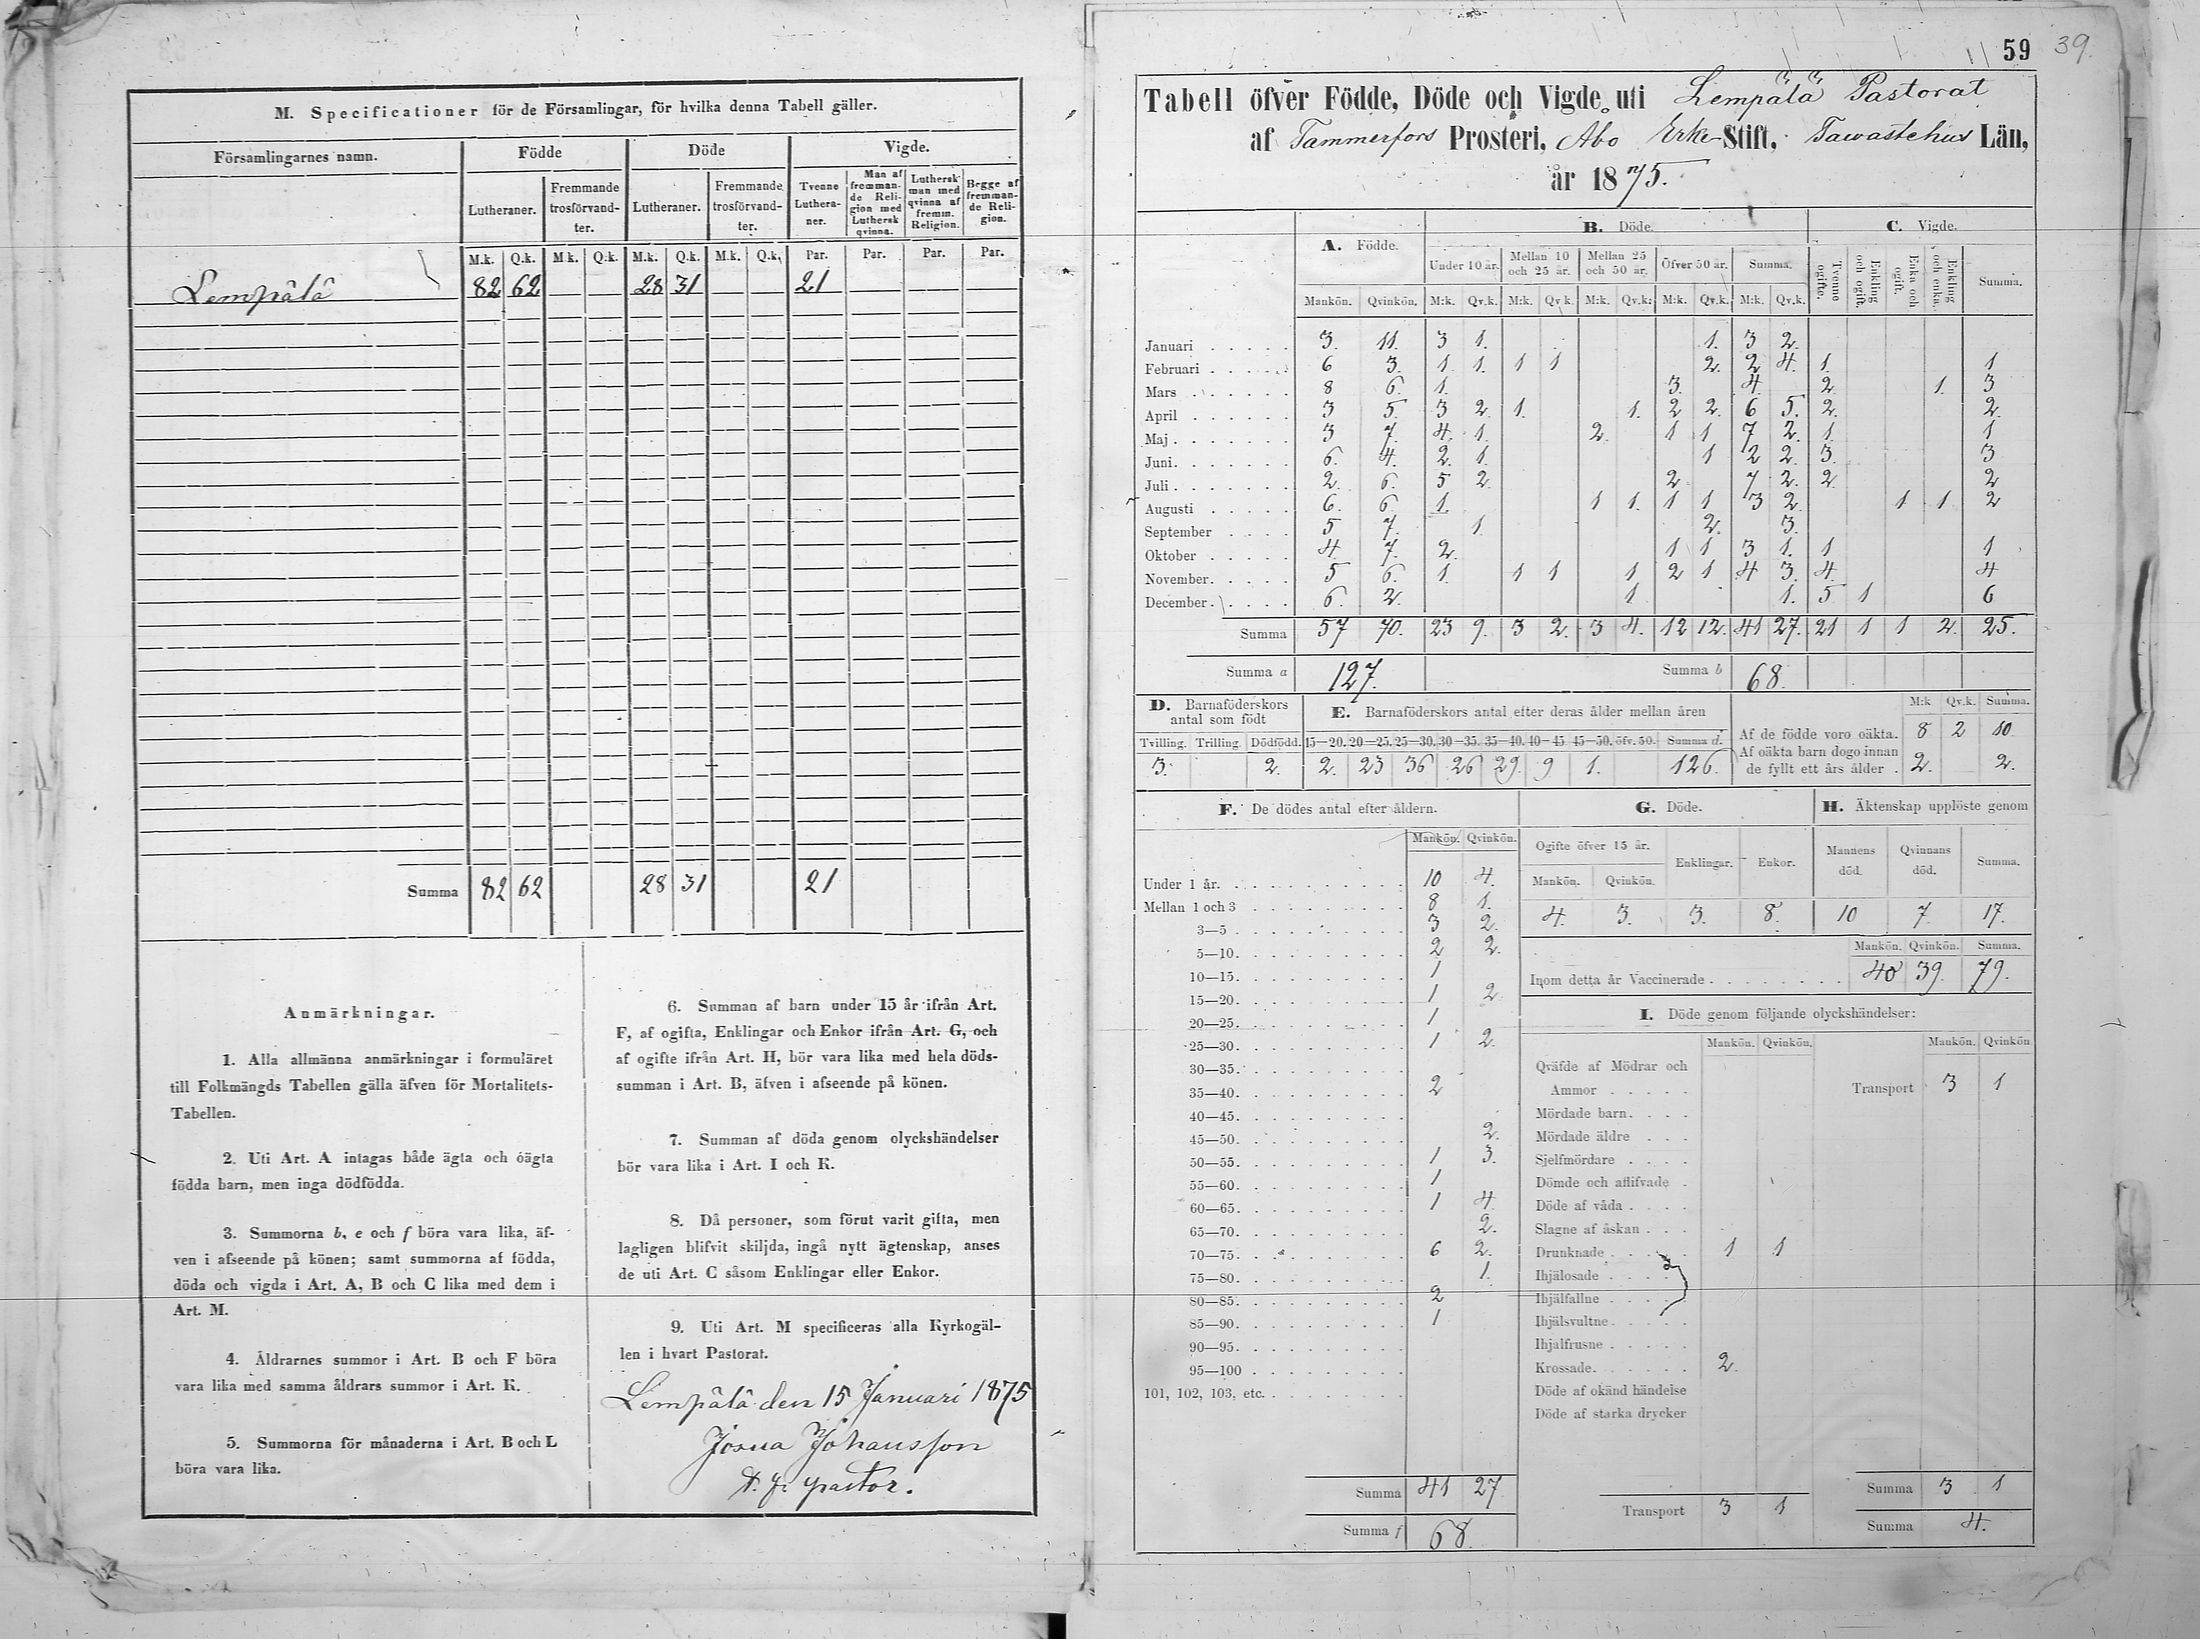 M. Specificationer för de Församlingar, för hvilka denna Tabell gäller.
Församlingarnes namn. Födde Döde Vigde.
Lutheraner. Fremmande trosförvandter. Lutheraner. Fremmande trosförvandter. Tvenne Lutheraner. Man af fremmande Religion med Luthersk qvinna. Luthersk man med qvinna af fremm. Religion. Begge af fremmande Religion.
M.k. Q.k. M.k. Q.k. M.k. Q.k. M.k. Q.k. Par. Par. Par. Par.
Lempälä 82 62 28 31 21
Summa 82 62 28 31 21
Anmärkningar.
1. Alla allmänna anmärkningar i formuläret
till Folkmängds Tabellen gälla äfven för Mortalitets-
Tabellen.
2. Uti Art. A intagas både ägta och oägta
födda barn, men inga dödfödda.
3. Summorna b, e och f böra vara lika, äf-
ven i afseende på könen; samt summorna af födda,
döda och vigda i Art. A, B och C lika med dem i
Art. M.
4. Åldrarnes summor i Art. B och F böra
vara lika med samma åldrars summor i Art. K.
5. Summorna för månaderna i Art. B och L
böra vara lika.
6. Summan af barn under 15 år ifrån Art.
F, af ogifta, Enklingar och Enkor ifrån Art. G, och
af ogifte ifrån Art. H, bör vara lika med hela döds-
summan i Art. B, äfven i afseende på könen.
7. Summan af döda genom olyckshändelser
bör vara lika i Art. I och K.
8. Då personer, som förut varit gifta, men
lagligen blifvit skiljda, ingå nytt ägtenskap, anses
de uti Art. C såsom Enklingar eller Enkor.
9. Uti Art. M specificeras alla Kyrkogäl-
len i hvart Pastorat.
Lempälä den 15 Januari 1875
Josua Johansson
pastor.
59 39.
Tabell öfver Födde, Döde och Vigde uti Lempälä Pastorat
af Tammerfors Prosteri, Åbo Erke-Stift, Tawastehus Län,
år 1875.
A. Födde. B. Döde. C. Vigde.
Under 10 år. Mellan 10 och 25 år. Mellan 25 och 50 år. Öfver 50 år. Summa. Tvenne ogifte. Enkling och ogift. Enka och ogift. Enkling och enka. Summa.
Mankön. Qvinkön. M:k. Qv.k. M:k. Qv.k. M:k. Qv.k: M:k. Qv.k. M:k. Qv.k.
Januari 3. 11. 3 1. 1. 3 2.
Februari 6 3. 1. 1. 1 1 2. 2 4. 1. 1
Mars 8 6. 1. 3. 4. 2. 1. 3
April 3 5. 3 2. 1. 1. 2 2. 6 5. 2. 2.
Maj 3 7. 4. 1. 2. 1 1 7 2. 1. 1
Juni 6. 4. 2. 1. 1 2 2. 3. 3
Juli 2. 6. 5 2. 2. 7 2. 2. 2
Augusti 6. 6. 1. 1 1. 1 1 3 2. 1 1 2
September 5 7. 1 2. 3.
Oktober 4 7. 2. 1 1 3 1. 1 1
November. 5 6. 1. 1 1 1 2 1 4 3. 4. 4
December. 6. 2. 1 1. 5 1 6
Summa 57 70. 23 9. 3 2. 3 4. 12 12. 41 27. 21 1 1 2. 25.
Summa a 127. Summa b 68.
D. Barnaföderskors antal som födt
Tvilling. Trilling. Dödfödd.
3. 2.
E. Barnaföderskors antal efter deras ålder mellan åren
15—20. 20—25. 25—30. 30—35. 35—40. 40—45 45—50. öfv. 50. Summa d.
2. 23 36 26 29. 9 1. 126.
M:k Qv.k. Summa.
Af de födde voro oäkta. 8 2 10
Af oäkta barn dogo innan
de fyllt ett års ålder . 2. 2.
F. De dödes antal efter åldern.
Mankön. Qvinkön.
Under 1 år. 10 4.
Mellan 1 och 3 8 1.
3—5 3 2.
5—10. 2 2.
10—15. 1
15—20. 1 2.
20—25. 1
25—30. 1 2.
30—35.
35—40. 2
40—45.
45—50. 2.
50—55. 1 3.
55—60. 1
60—65. 1 4.
65—70. 2.
70—75. 6 2.
75—80. 1.
80—85. 2
85—90. 1
90—95.
95—100
101, 102, 103, etc.
Summa 41 27
Summa f 68.
G. Döde.
Ogifte öfver 15 år. Enklingar. Enkor.
Mankön. Qvinkön.
4. 3. 3. 8.
H. Äktenskap upplöste genom
Mannens död. Qvinnans död. Summa.
10 7. 17.
Mankön. Qvinkön. Summa.
Inom detta år Vaccinerade 40 39. 79.
I. Döde genom följande olyckshändelser:
Mankön. Qvinkön. Mankön. Qvinkön
Qväfde af Mödrar och
Ammor Transport 3 1
Mördade barn.
Mördade äldre
Sjelfmördare
Dömde och aflifvade
Döde af våda
Slagne af åskan
Drunknade 1 1
Ihjälosade
Ihjälfallne
Ihjälsvultne
Ihjälfrusne
Krossade. 2.
Döde af okänd händelse
Döde af starka drycker
Summa 3 1
Transport 3 1
Summa 4.